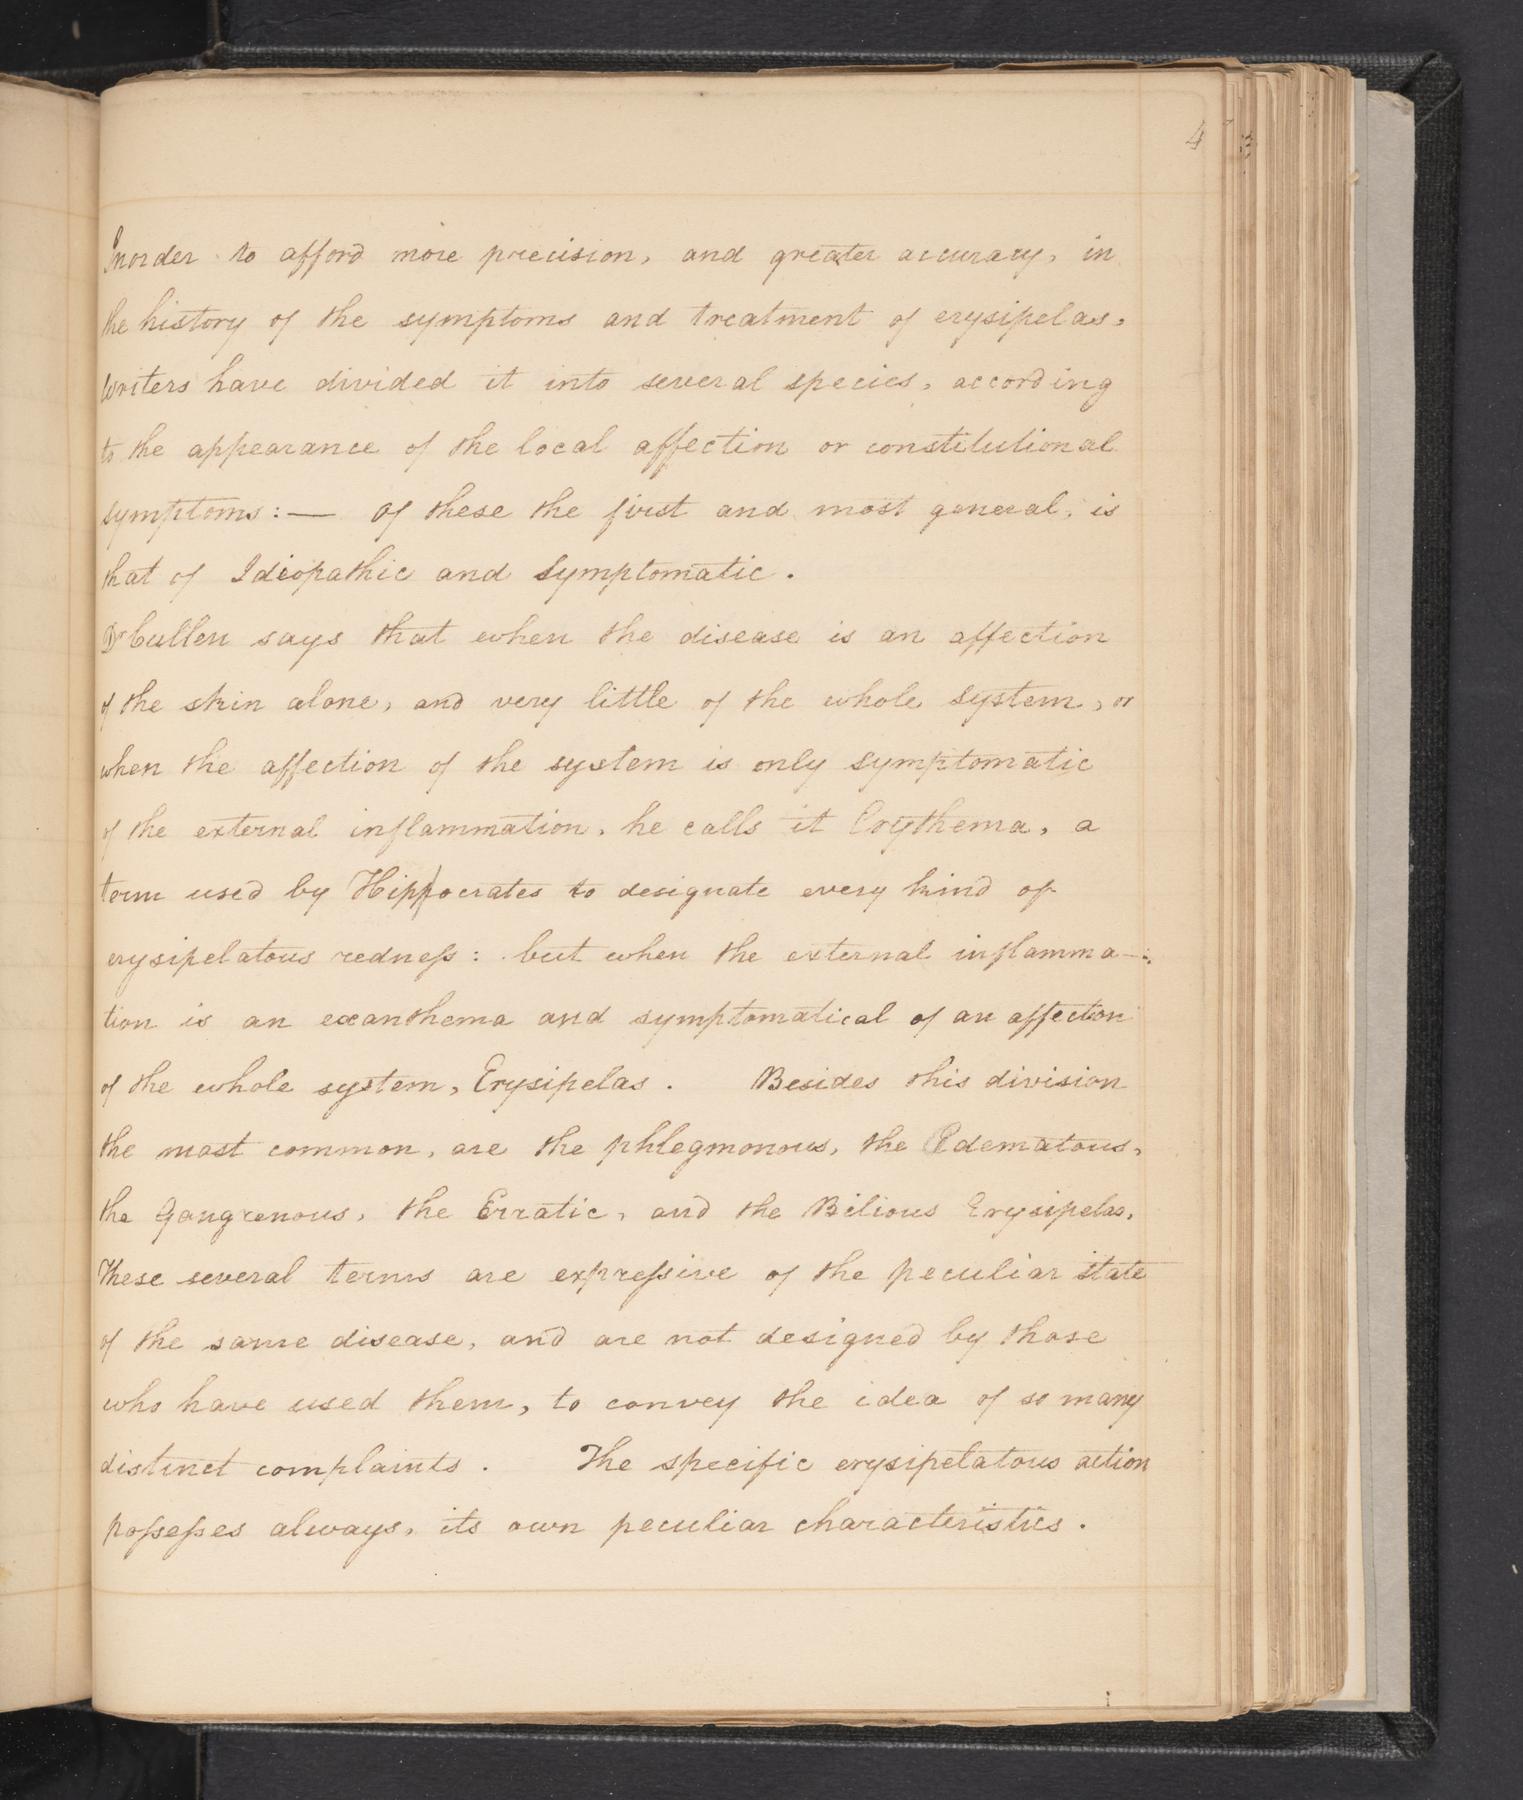 4
Inorder to afford more precision, and greater accuracy, in
the history of the symptoms and treatment of erysipelas,
writers have divided it into several species, according
to the appearance of the local affection or constitutional
symptoms:— Of these the first and most general, is
that of Idiopathic and Symptomatic.
Dr Cullen says that when the disease is an affection
of the skin alone, and very little of the whole system, or
when the affection of the system is only symptomatic
of the external inflammation, he calls it Erythema, a
term used by Hippocrates to designate every kind of
erysipelatous redneſs: but when the external inflamma-
tion is an exanthema and symptomatical of an affection
of the whole system, Erysipelas. Besides this division
the most common, are the phlegmonous, the Edematous,
the Gangrenous, the Erratic, and the Bilious Erysipelas,
These several terms are expreſsive of the peculiar state
of the same disease, and are not designed by those
who have used them, to convey the idea of so many
distinct complaints. The specific erysipelatous action
poſseſses always, its own peculiar characteristics.